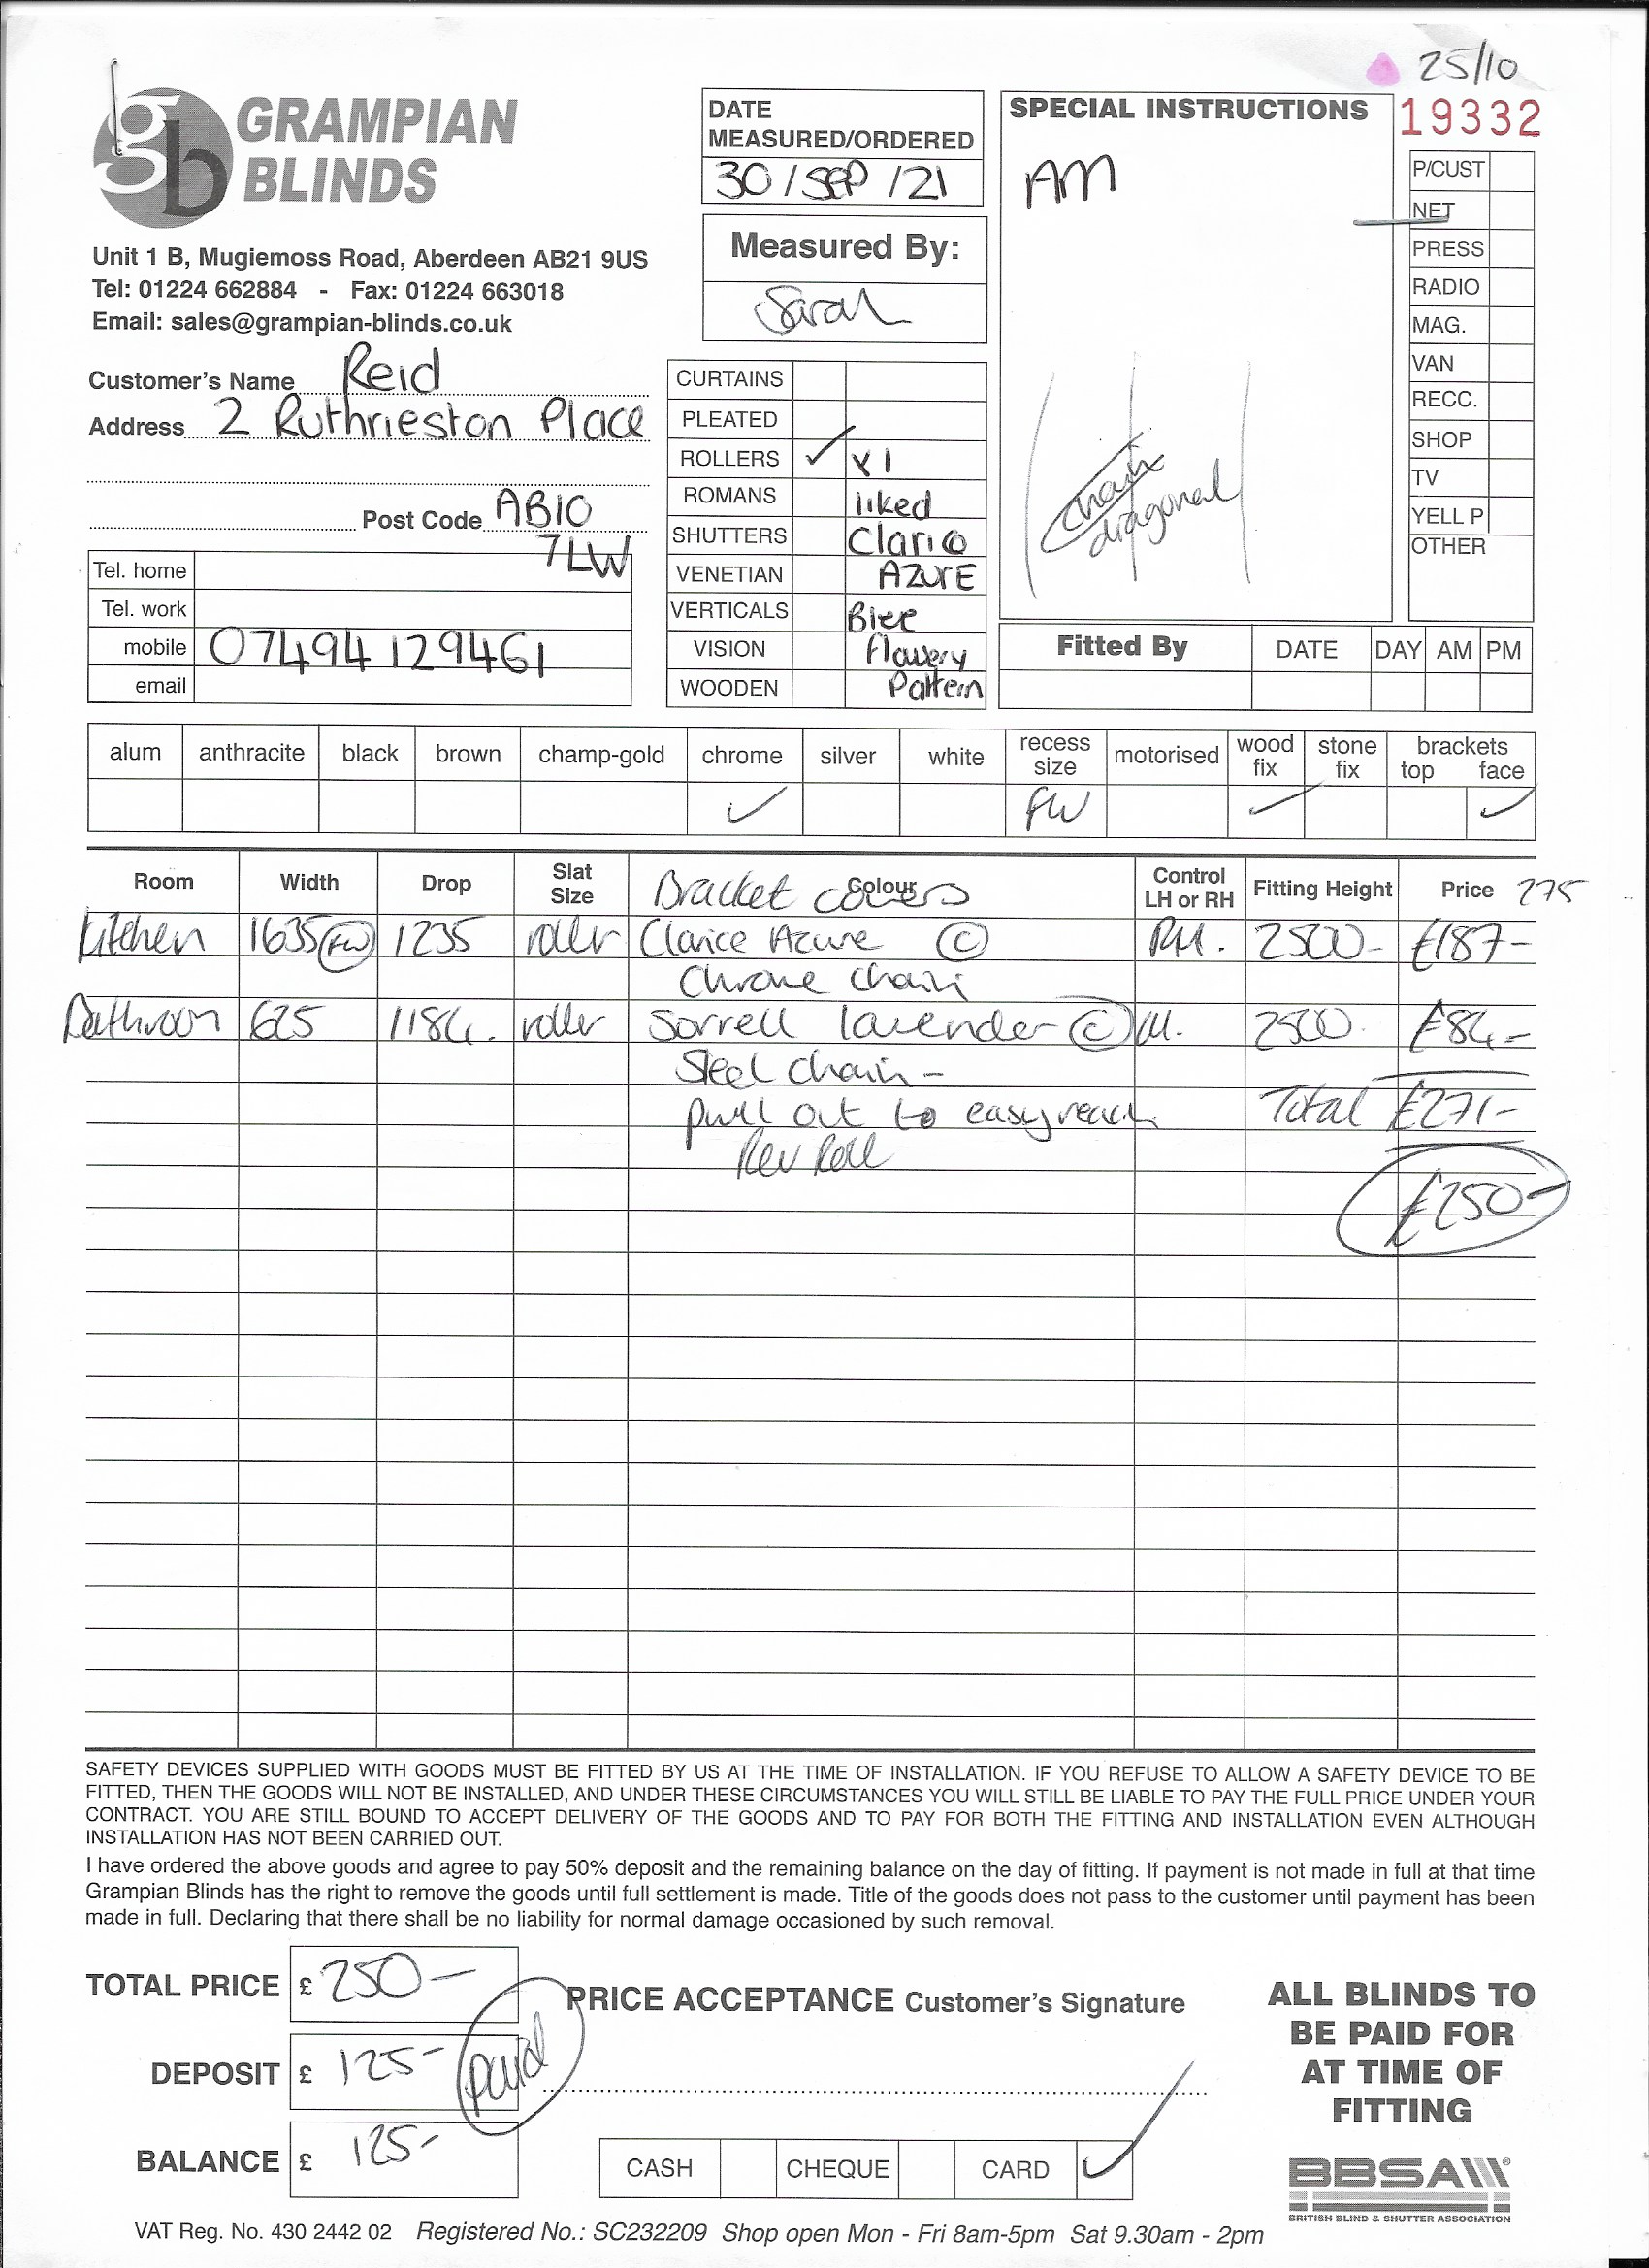 25/10
GRAMPIAN
BLINDS
Unit 1 B, Mugiemoss Road, Aberdeen AB21 9US
Tel: 01224 662884 - Fax: 01224 663018
Email: sales@grampian-blinds.co.uk
Customer's Name Reid
Address 2 Ruthrieston Place
Post Code AB10
7LW
Tel. home
Tel. work
mobile 07494 129461
email
DATE
MEASURED/ORDERED
30/SEP/21
Measured By:
Sarah
CURTAINS
PLEATED
ROLLERS ✓ x1
ROMANS liked
SHUTTERS
VENETIAN AZURE
VERTICALS
VISION Flowery
WOODEN Pattern
SPECIAL INSTRUCTIONS
AM
chain
diagonal
19332
P/CUST
NET
PRESS
RADIO
MAG.
VAN
RECC.
SHOP
TV
YELL P
OTHER
Fitted By DATE DAY AM PM
alum anthracite black brown champ-gold chrome silver white recess size motorised wood fix stone fix brackets top face
✓ FW ✓ ✓
Room Width Drop Slat Size Colour Control LH or RH Fitting Height Price 275
Bracket covers
Kitchen 1635 FW 1235 roller Clarice Azure © RH. 2500- £187-
Chrome chain
Bathroom 625 1184. roller Sorrell lavender © 2500. £84-
Steel chain-
pull out to easyreach. Total £271-
Rev Roll
£250-
SAFETY DEVICES SUPPLIED WITH GOODS MUST BE FITTED BY US AT THE TIME OF INSTALLATION. IF YOU REFUSE TO ALLOW A SAFETY DEVICE TO BE
FITTED, THEN THE GOODS WILL NOT BE INSTALLED, AND UNDER THESE CIRCUMSTANCES YOU WILL STILL BE LIABLE TO PAY THE FULL PRICE UNDER YOUR
CONTRACT. YOU ARE STILL BOUND TO ACCEPT DELIVERY OF THE GOODS AND TO PAY FOR BOTH THE FITTING AND INSTALLATION EVEN ALTHOUGH
INSTALLATION HAS NOT BEEN CARRIED OUT.
I have ordered the above goods and agree to pay 50% deposit and the remaining balance on the day of fitting. If payment is not made in full at that time
Grampian Blinds has the right to remove the goods until full settlement is made. Title of the goods does not pass to the customer until payment has been
made in full. Declaring that there shall be no liability for normal damage occasioned by such removal.
TOTAL PRICE £ 250-
DEPOSIT £ 125- paid
BALANCE £ 125-
PRICE ACCEPTANCE Customer's Signature
CASH CHEQUE CARD ✓
ALL BLINDS TO
BE PAID FOR
AT TIME OF
FITTING
BBSA
BRITISH BLIND & SHUTTER ASSOCIATION
VAT Reg. No. 430 2442 02 Registered No.: SC232209 Shop open Mon - Fri 8am-5pm Sat 9.30am - 2pm